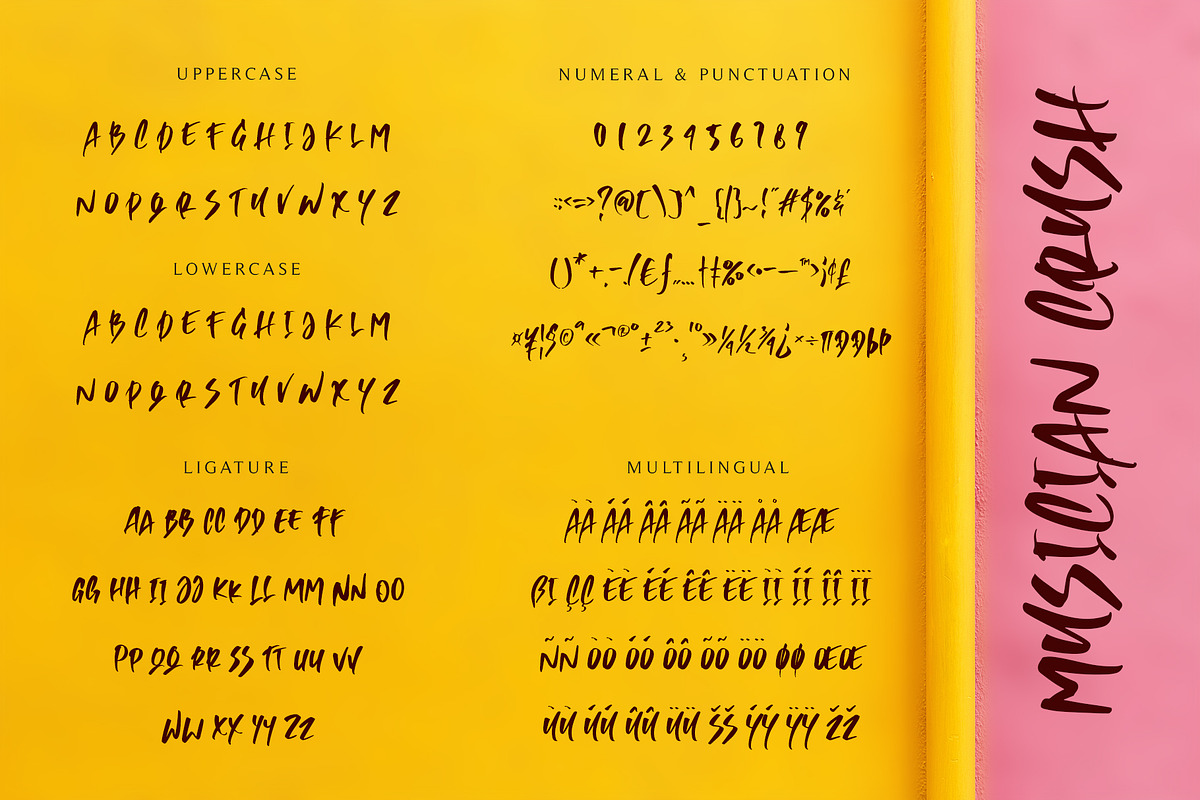 UPPERCASE
A B C D E F G H I J K L M
N O P Q R S T U V W X Y Z
LOWERCASE
A B C D E F G H I J K L M
N O P Q R S T U V W X Y Z
LIGATURE
AA BB CC DD EE FF
GG HH II JJ KK LL MM NN OO
PP QQ RR SS TT UU VV
WW XX YY ZZ
NUMERAL & PUNCTUATION
0 1 2 3 4 5 6 7 8 9
:;<=>?@[\]^_{|}~!"#$%&'
()*+,-./€ƒ„…†‡‰‹•–—™›¡¢£
¤¥¦§©ª«¬®º±²³·¸¹º»¼½¾¿×÷¶ÐÐÞÞ
MULTILINGUAL
ÀÀ ÁÁ ÂÂ ÃÃ ÄÄ ÅÅ ÆÆ
ßI ÇÇ ÈÈ ÉÉ ÊÊ ËË ÌÌ ÍÍ ÎÎ ÏÏ
ÑÑ ÒÒ ÓÓ ÔÔ ÕÕ ÖÖ ØØ ŒŒ
ÙÙ ÚÚ ÛÛ ÜÜ ŠŠ ÝÝ ŸŸ ŽŽ
MUSICIAN CRUSH